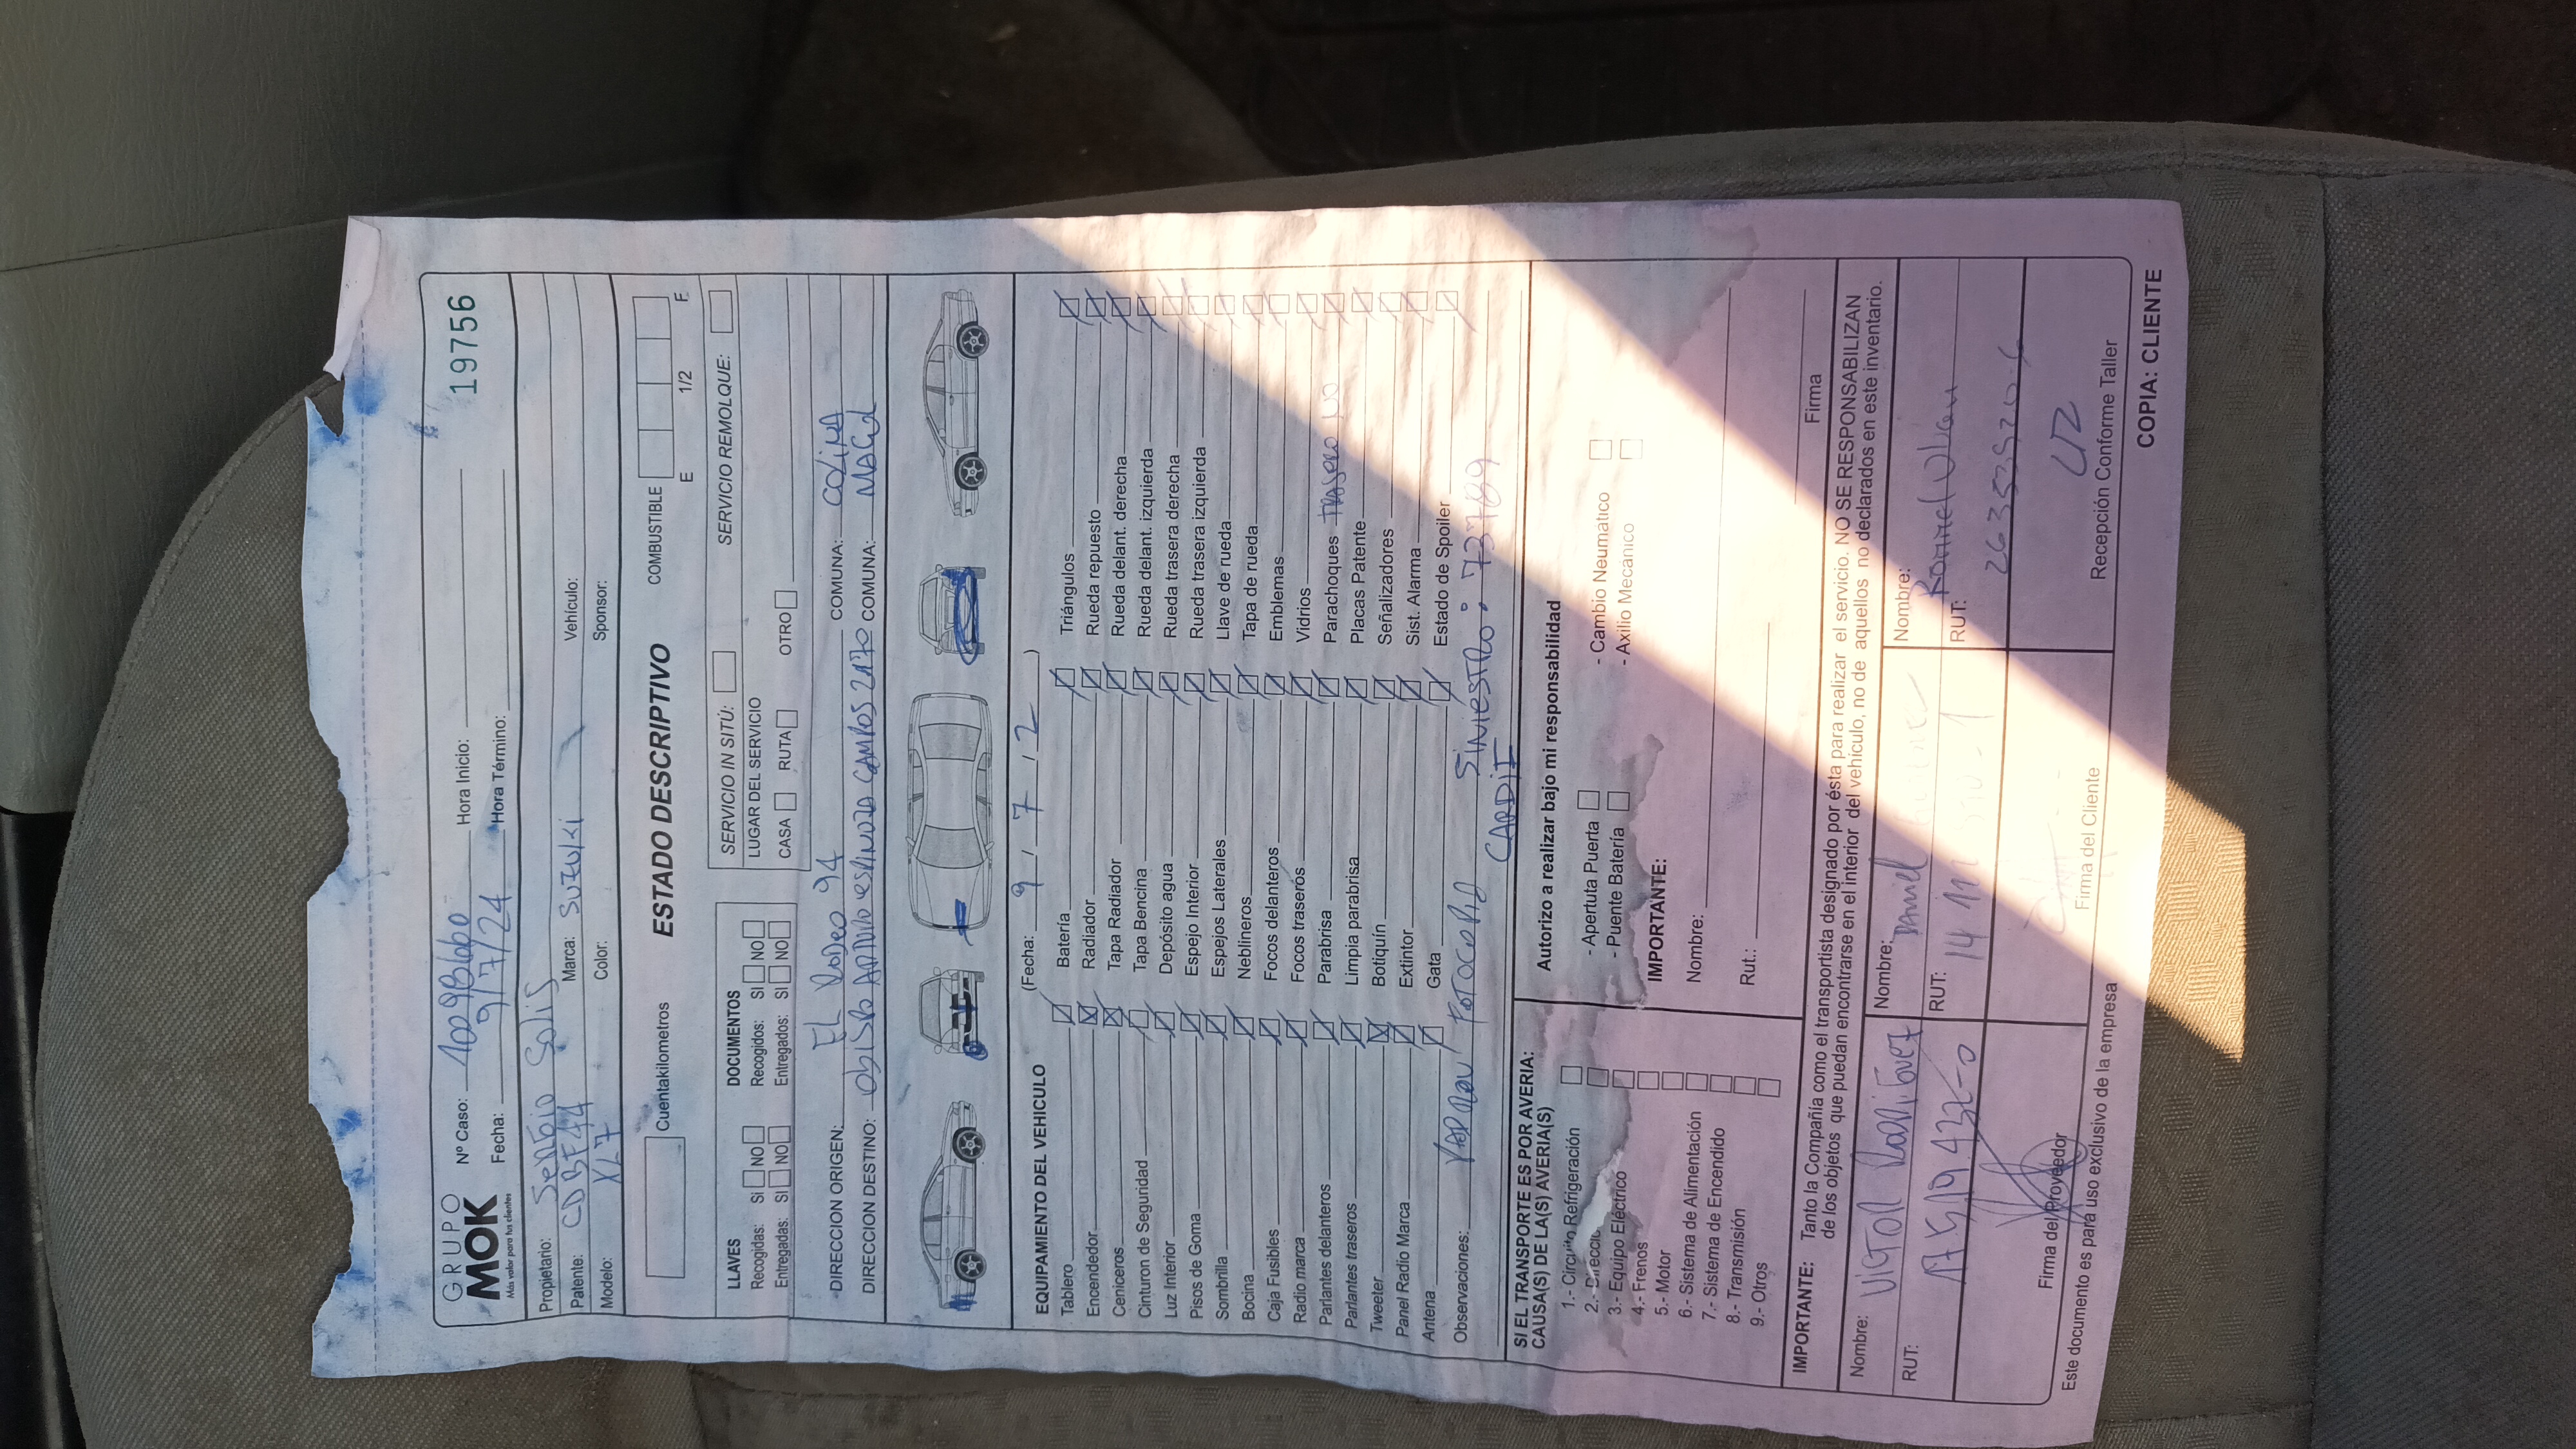 GRUPO
MOK
Más valor para tus clientes
Nº Caso: Hora Inicio: 19756
Fecha: 9/7/24 Hora Término:
Propietario: Sergio Solis
Patente: CDBF44 Marca: Suzuki Vehículo:
Modelo: XL7 Color: Sponsor:
Cuentakilometros ESTADO DESCRIPTIVO COMBUSTIBLE E 1/2 F
LLAVES DOCUMENTOS SERVICIO IN SITÚ: SERVICIO REMOLQUE:
Recogidas: SI NO Recogidos: SI NO LUGAR DEL SERVICIO
Entregadas: SI NO Entregados: SI NO CASA RUTA OTRO
DIRECCION ORIGEN: EL Rodeo 94 COMUNA: COLINA
DIRECCION DESTINO: obispo Arturo espinoza Campos 2170 COMUNA: MACUL
EQUIPAMIENTO DEL VEHICULO (Fecha: 9 / 7 / 2 )
Tablero Batería Triángulos
Encendedor Radiador Rueda repuesto
Ceniceros Tapa Radiador Rueda delant. derecha
Cinturon de Seguridad Tapa Bencina Rueda delant. izquierda
Luz Interior Depósito agua Rueda trasera derecha
Pisos de Goma Espejo Interior Rueda trasera izquierda
Sombrilla Espejos Laterales Llave de rueda
Bocina Neblineros Tapa de rueda
Caja Fusibles Focos delanteros Emblemas
Radio marca Focos traseros Vidrios
Parlantes delanteros Parabrisa Parachoques TRASERO NO
Parlantes traseros Limpia parabrisa Placas Patente
Tweeter Botiquín Señalizadores
Panel Radio Marca Extintor Sist. Alarma
Antena Gata Estado de Spoiler
Observaciones: PADRON / FOTOCOPIA SINIESTRO: 737189
CARDIF
SI EL TRANSPORTE ES POR AVERIA:
CAUSA(S) DE LA(S) AVERIA(S)
1.- Circuito Refrigeración
2.- Direcció
3.- Equipo Eléctrico
4.- Frenos
5.- Motor
6.- Sistema de Alimentación
7.- Sistema de Encendido
8.- Transmisión
9.- Otros
Autorizo a realizar bajo mi responsabilidad
- Apertuta Puerta - Cambio Neumatico
- Puente Batería - Axilio Mecánico
IMPORTANTE:
Nombre:
Rut.: Firma
IMPORTANTE: Tanto la Compañía como el transportista designado por ésta para realizar el servicio. NO SE RESPONSABILIZAN
de los objetos que puedan encontrarse en el interior del vehículo, no de aquellos no declarados en este inventario.
Nombre: Victor Rodriguez Nombre: Daniel Nombre:
RUT: RUT: RUT:
Firma del Proveedor Firma del Cliente Recepción Conforme Taller
Este documento es para uso exclusivo de la empresa
COPIA: CLIENTE